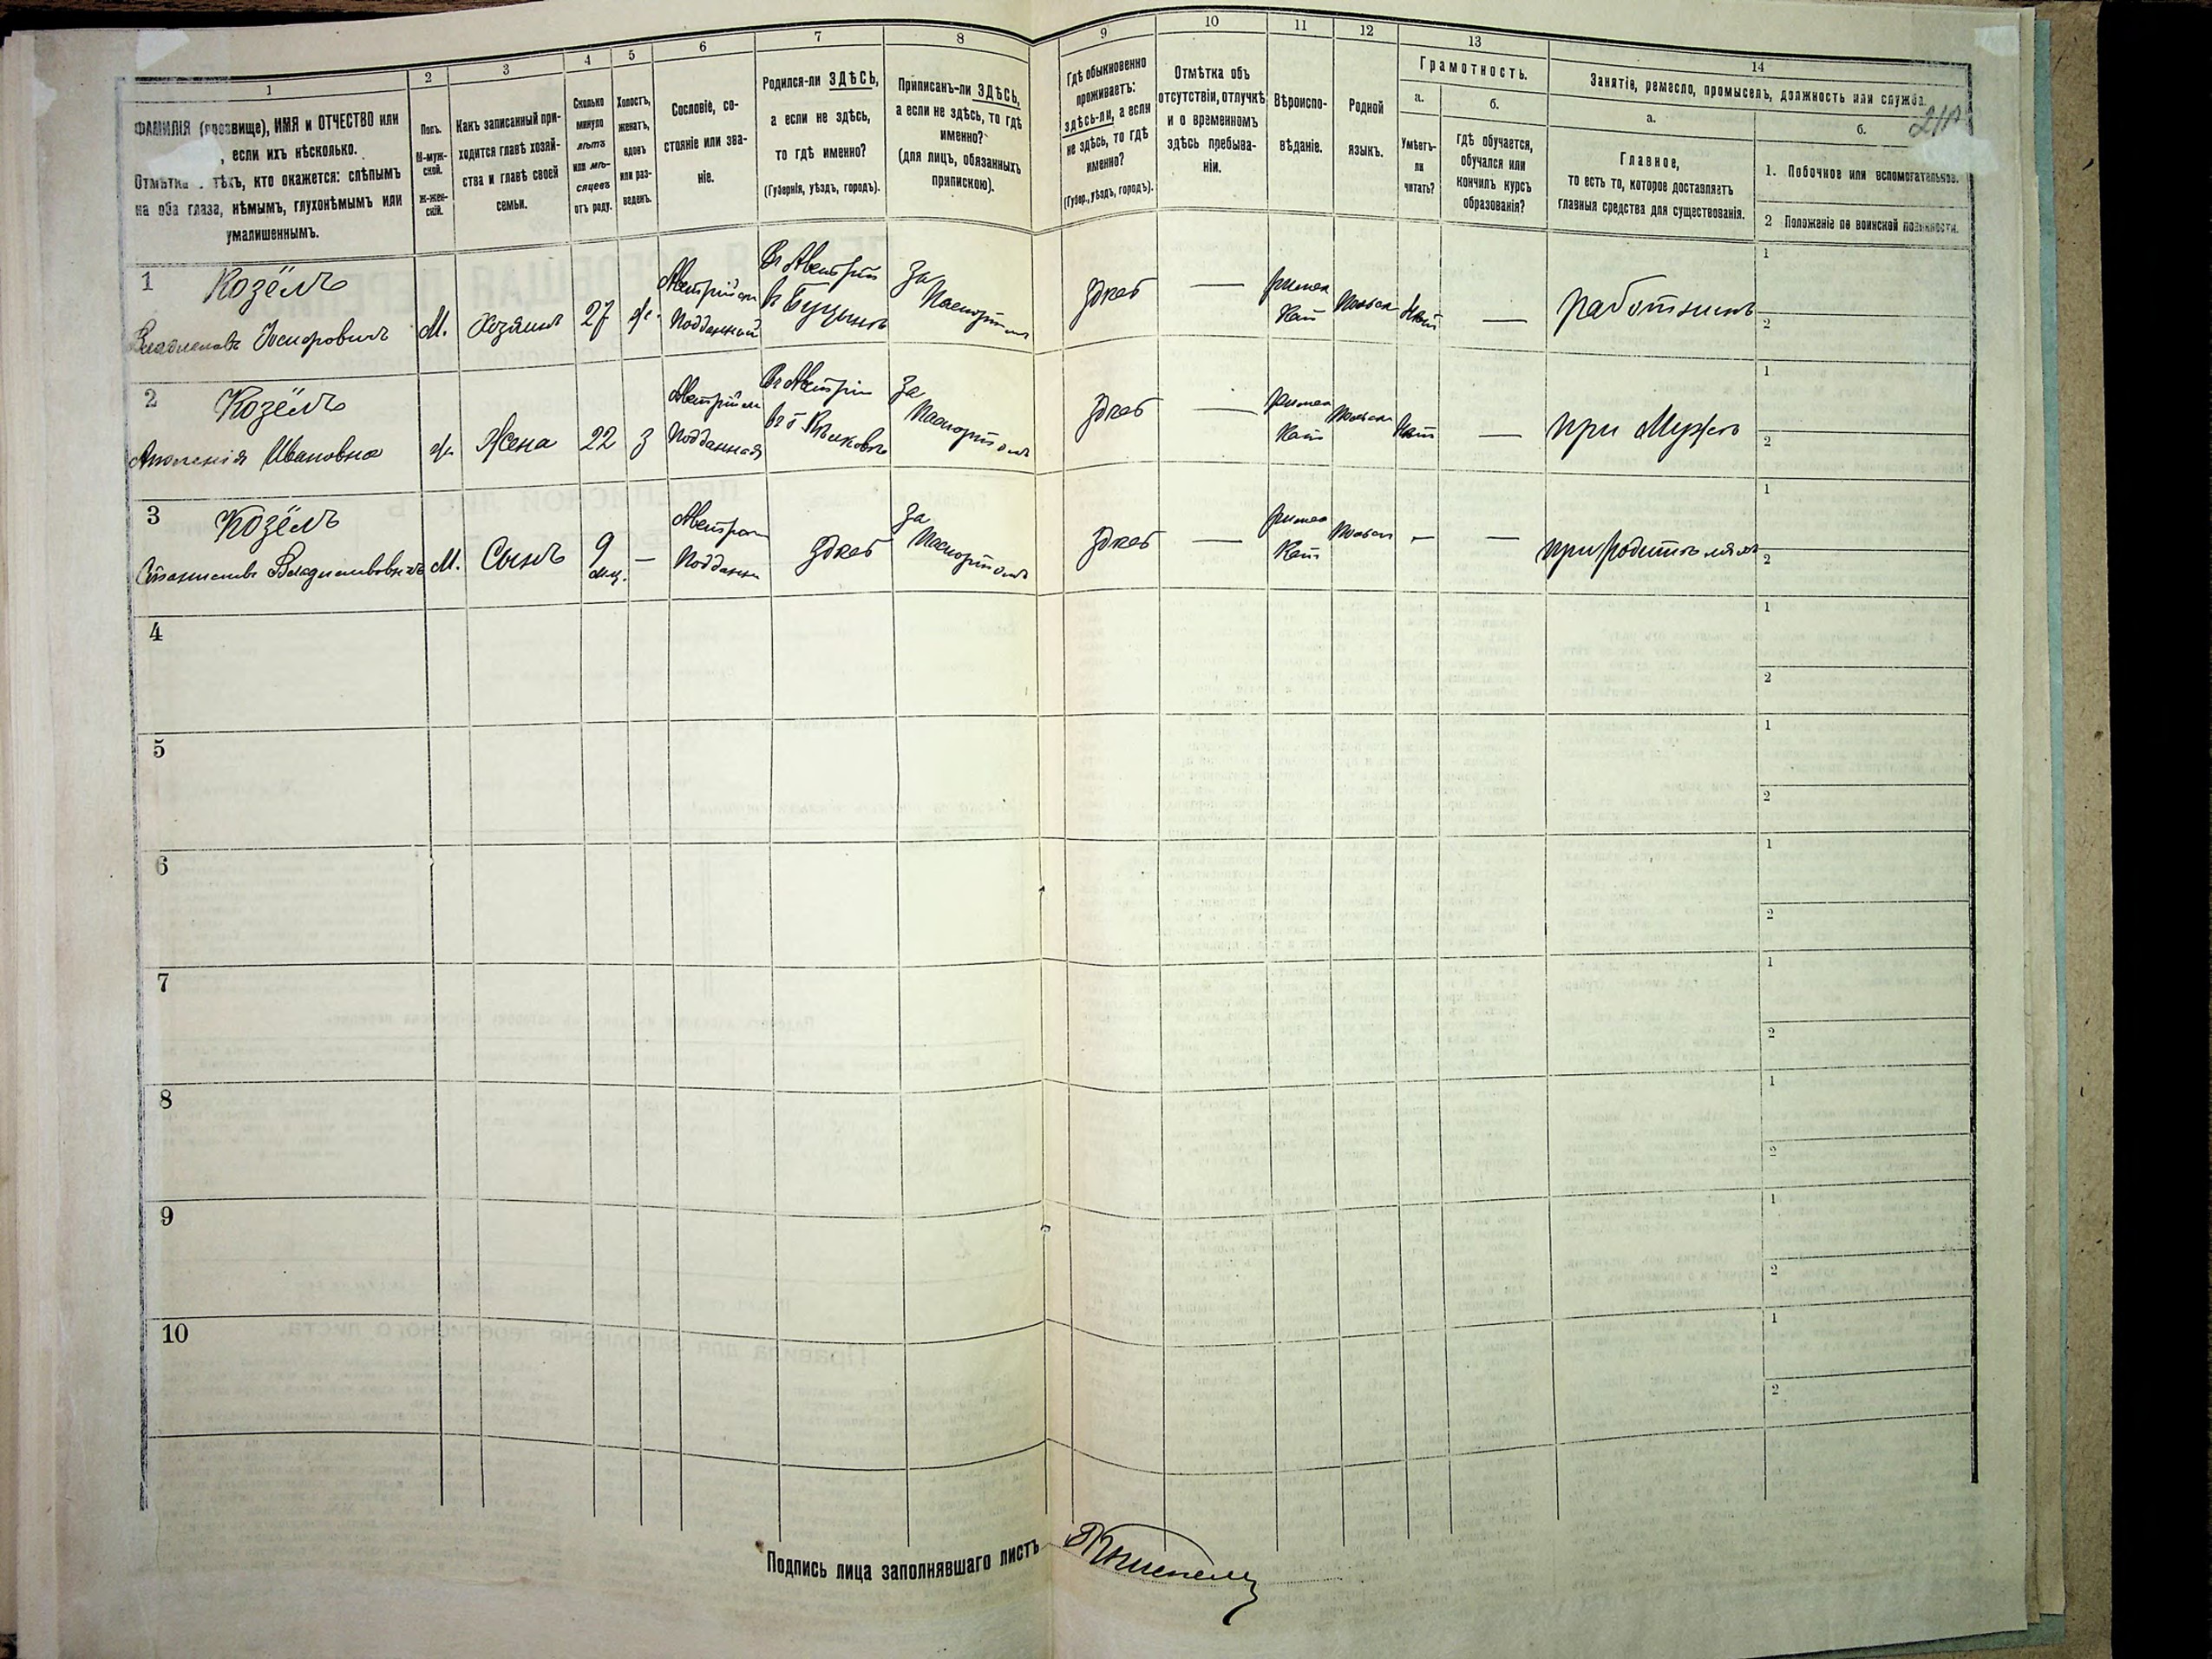 1 2 3 4 5 6 7 8 9 10 11 12 13 14
ФАМИЛІЯ (прозвище), ИМЯ и ОТЧЕСТВО или
, если ихъ нѣсколько.
Отмѣтка о тѣхъ, кто окажется: слѣпымъ
на оба глаза, нѣмымъ, глухонѣмымъ или
умалишеннымъ.
Полъ.
М-муж-
ской.
Ж-жен-
скій.
Какъ записанный при-
ходится главѣ хозяй-
ства и главѣ своей
семьи.
Сколько
минуло
лѣтъ
или мѣ-
сяцевъ
отъ роду.
Холостъ,
женатъ,
вдовъ
или раз-
веденъ.
Сословіе, со-
стояніе или зва-
ніе.
Родился-ли ЗДѢСЬ,
а если не здѣсь,
то гдѣ именно?
(Губернія, уѣздъ, городъ).
Приписанъ-ли ЗДѢСЬ,
а если не здѣсь, то гдѣ
именно?
(для лицъ, обязанныхъ
припискою).
Гдѣ обыкновенно
проживаетъ:
здѣсь-ли, а если
не здѣсь, то гдѣ
именно?
(Губер., уѣздъ, городъ).
Отмѣтка объ
отсутствіи, отлучкѣ
и о временномъ
здѣсь пребыва-
ніи.
Вѣроиспо-
вѣданіе.
Родной
языкъ.
Грамотность.
а.
Умѣетъ-
ли
читать?
б.
Гдѣ обучается,
обучался или
кончилъ курсъ
образованія?
Занятіе, ремесло, промыселъ, должность или служба.
а.
Главное,
то есть то, которое доставляетъ
главныя средства для существованія.
б.
1. Побочное или вспомогательное.
2 Положеніе по воинской повинности.
1 Козёлъ
Владиславъ Іосифовичъ
М.
Хозяинъ
27
ж.
Австрійск
Подданный
Въ Австріи
За
Паспортомъ
здѣсь
—
римск
Кат
Польск
Нѣт
—
работникъ
1
2
2 Козёлъ
Аполенія Ивановна
ж
Жена
22
з
Австрійск
Подданная
Въ Австріи
За
Паспортомъ
здѣсь
—
римск
Кат
Польск
Нѣт
—
при Мужѣ
1
2
3 Козёлъ
Станиславъ Владиславовичъ
М.
Сынъ
9
мѣц.
—
Подданн
здѣсь
За
Паспортомъ
здѣсь
—
римск
Кат
Польск
—
—
при родителяхъ
1
2
4
1
2
5
1
2
6
1
2
7
1
2
8
1
2
9
1
2
10
1
2
Подпись лица заполнявшаго листъ